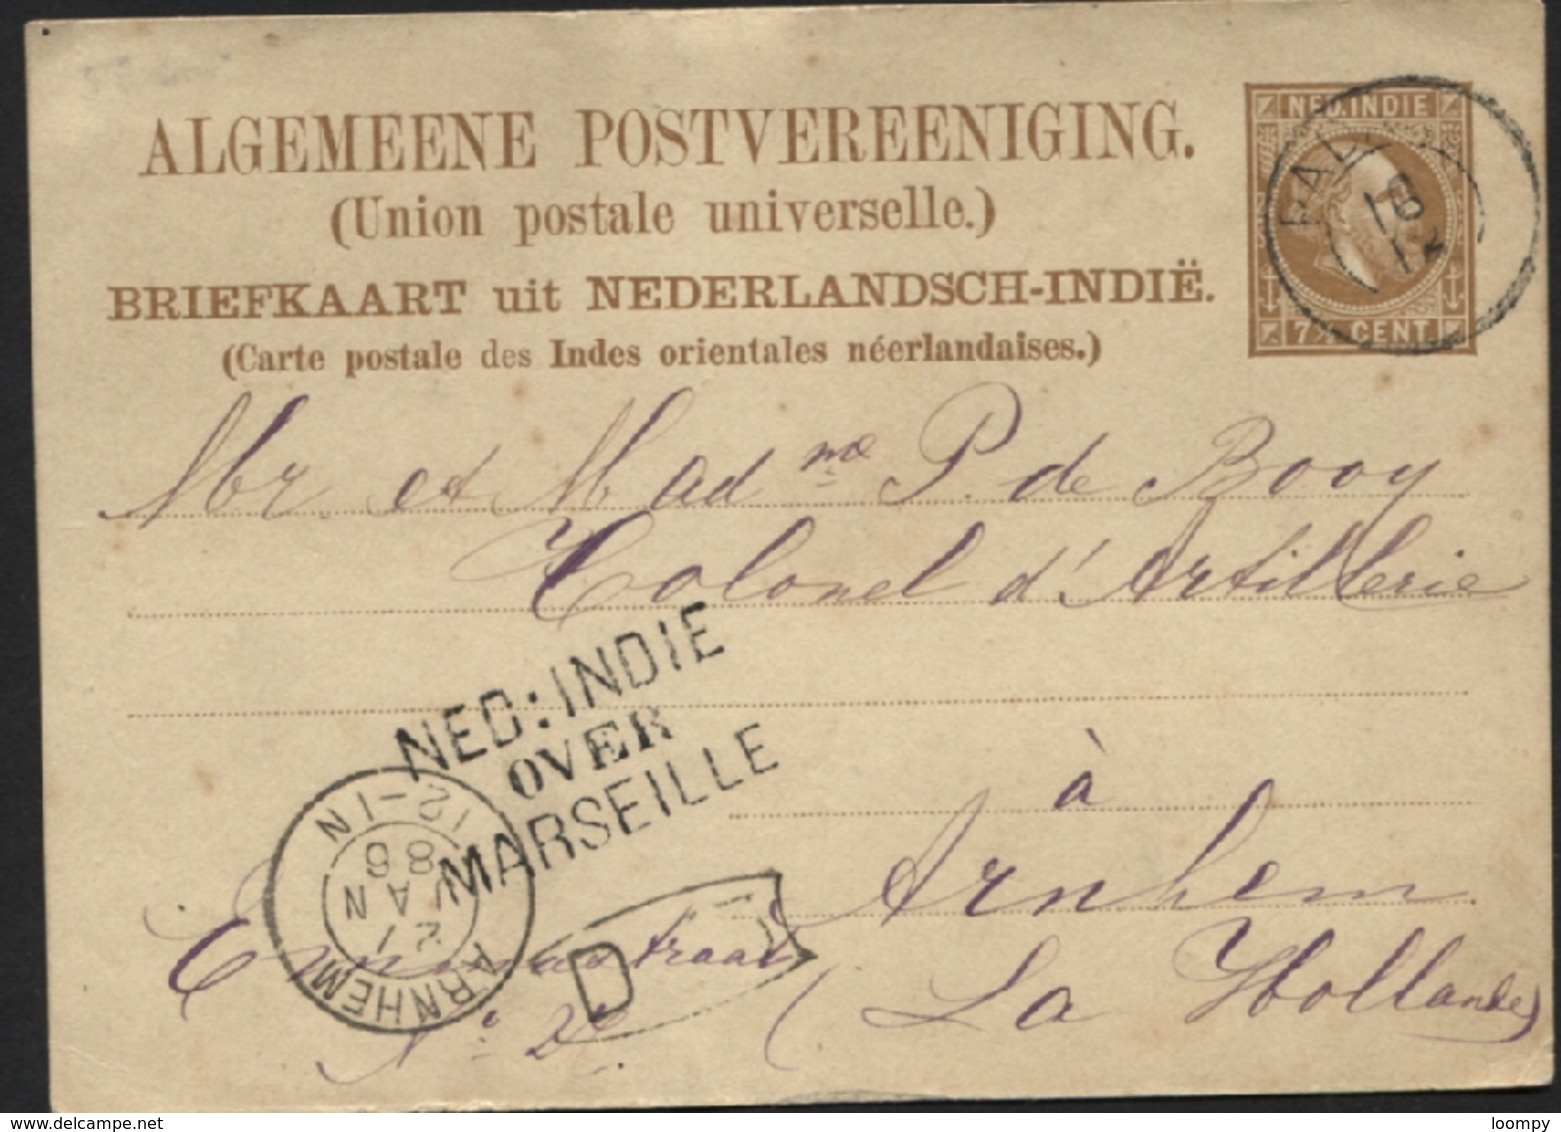 ALGEMEENE POSTVEREENIGING.
(Union postale universelle.)
BRIEFKAART uit NEDERLANDSCH-INDIË.
(Carte postale des Indes orientales néerlandaises.)
NED. INDIE
7½ CENT
18
12
Mr et Madme P. de Booy
Colonel d'Artillerie
à
Arnhem
(La Hollande)
Emmastraat
No
NED: INDIE
OVER
MARSEILLE
ARNHEM
21
JAN
86
12-1N
D
loompy